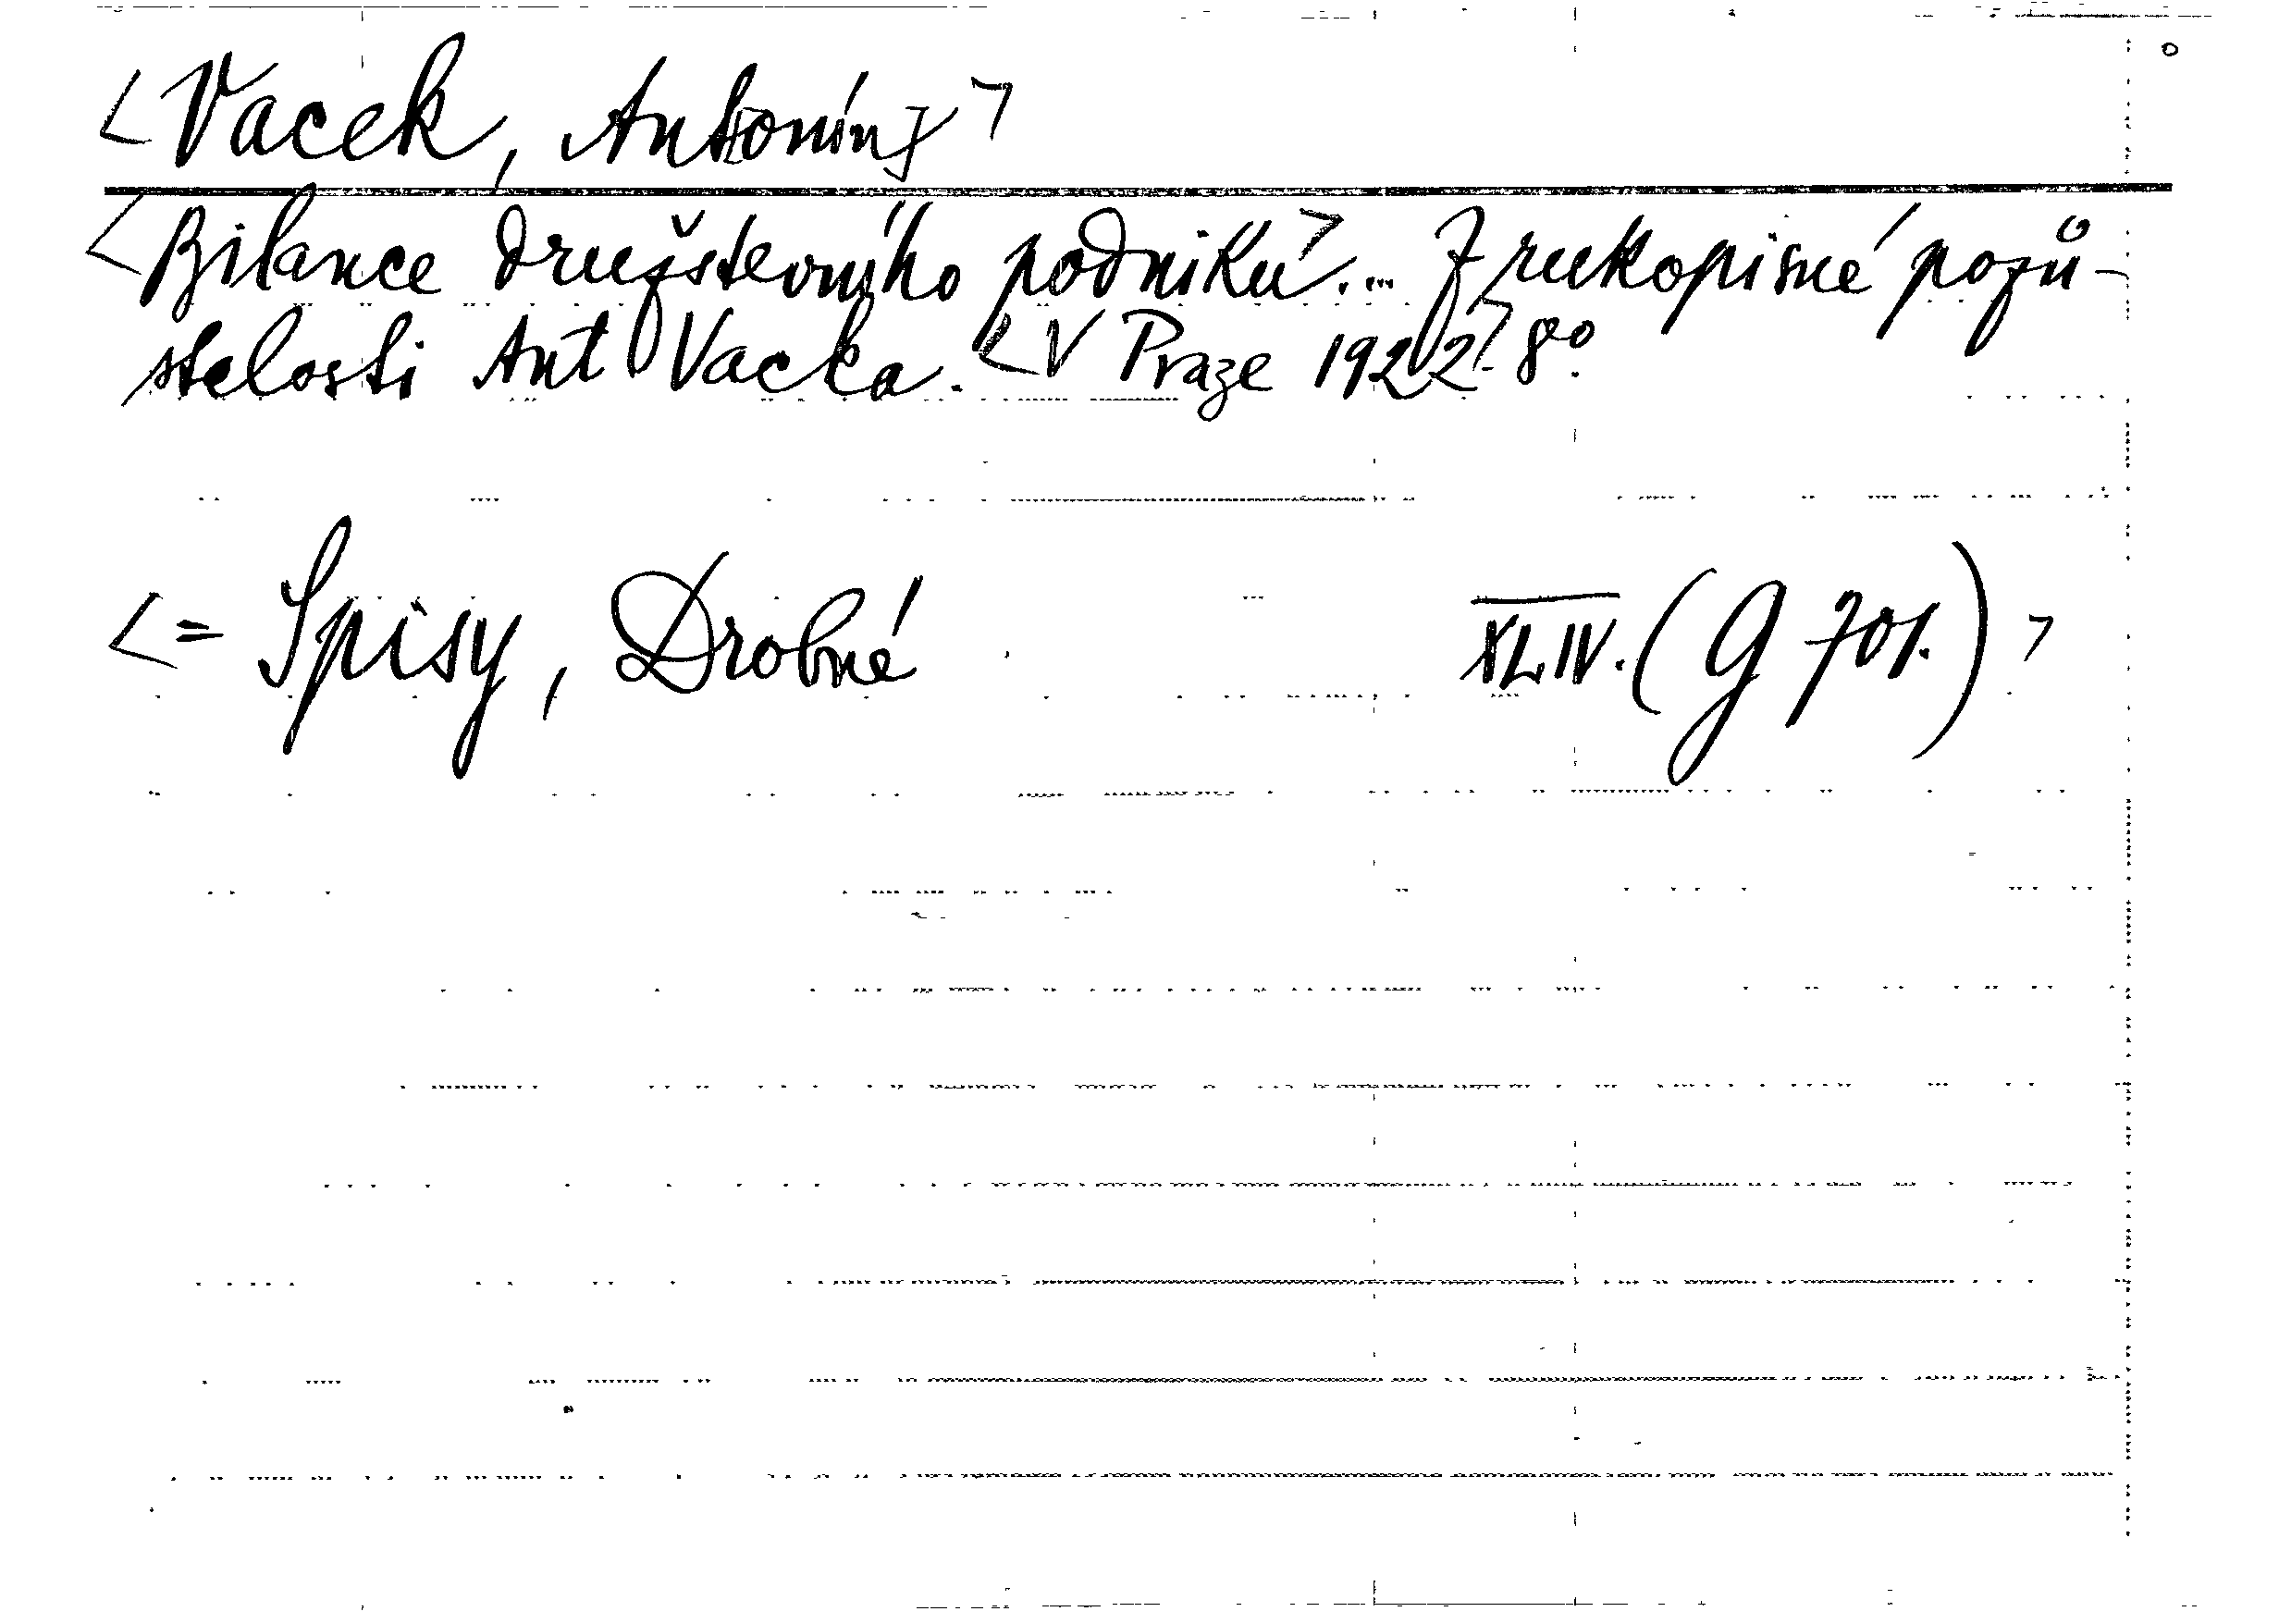 <Vacek, Ant[onín]>
<Bilance družstevního podniku>... Z rukopisné pozů-
stalosti Ant Vacka. <V Praze 1922>. 8°.
<= Spisy, Drobné XLIV. (G 701.)>